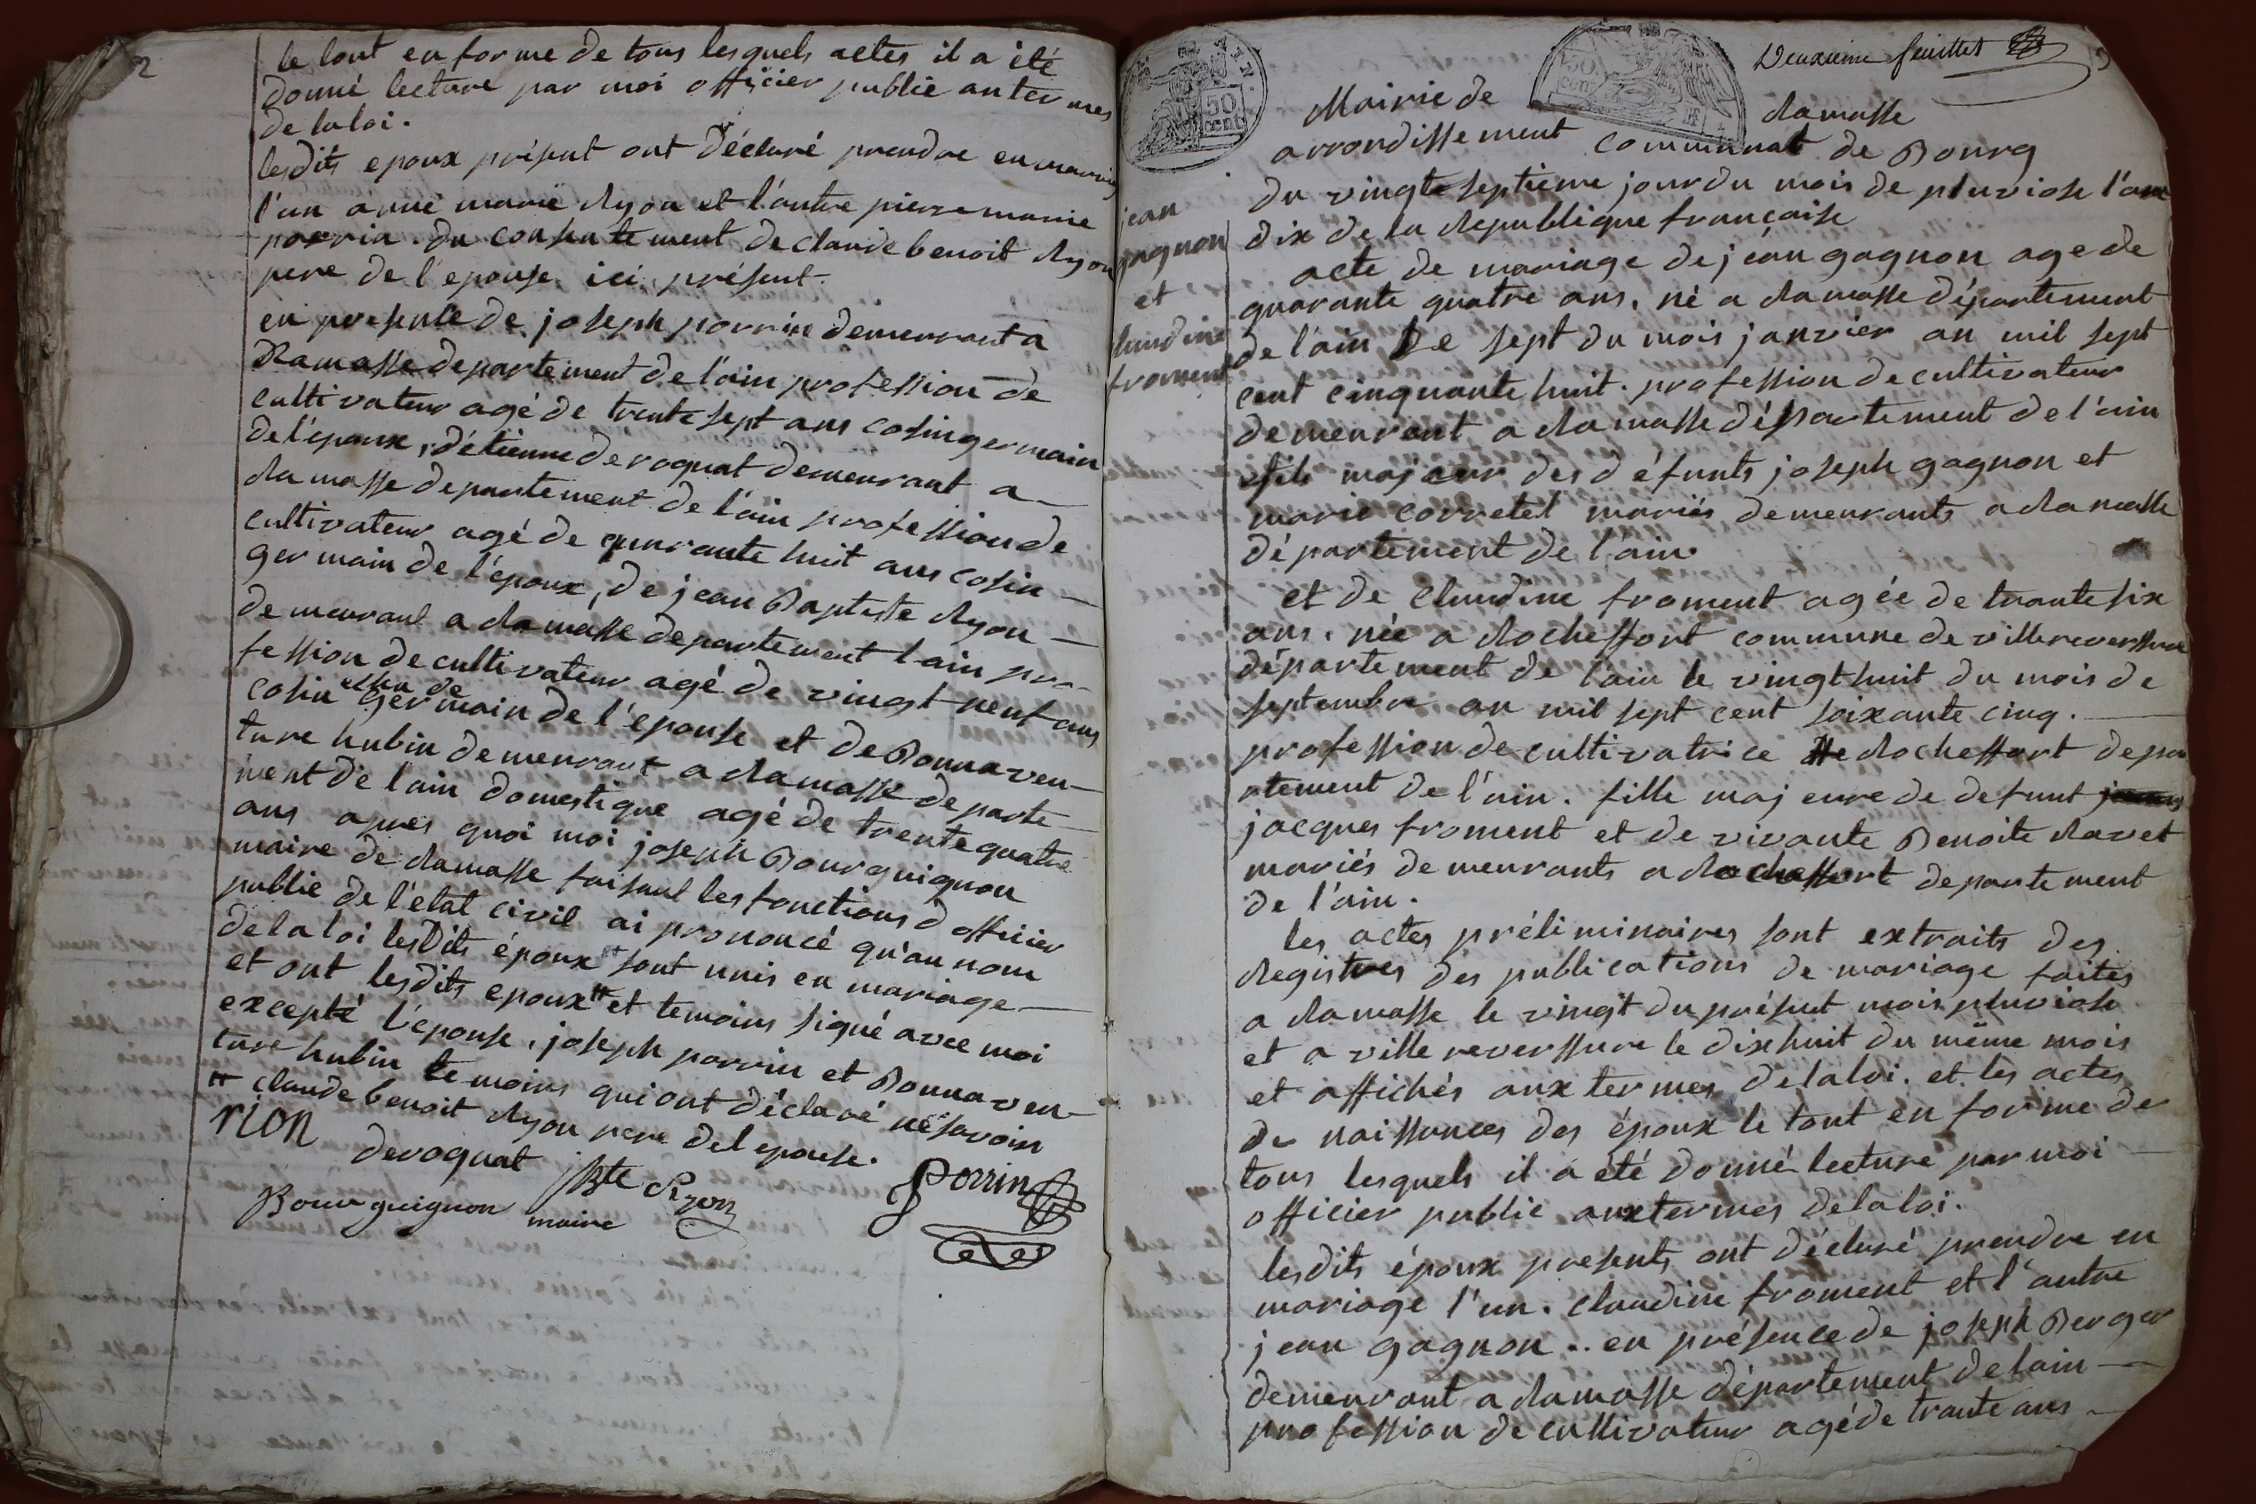 2
le tout en forme de tous lesquels actes il a été
donné lecture par moi officier public au termes
de la loi.
lesdits epoux présent ont déclaré prendre en mariage
l'un anne marie Ryon et l'autre pierre marie
porrin. du consentement de claude benoit Ryon
pere de l'epouse ici présent.
en presence de joseph porrin demeurant a
Ramasse departement de l'ain profession de
cultivateur agé de trente sept ans cosin germain
de l'epoux, d'étienne devoquat demeurant a
Ramasse departement de l'ain profession de
cultivateur agé de quarante huit ans cosin
germain de l'époux, de jean Baptiste Ryon
demeurant a Ramasse departement l'ain pro-
fession de cultivateur agé de vingt neuf ans
cosin issu de germain de l'epouse et de Bonnaven-
ture hubin demeurant a Ramasse departe-
ment de l'ain domestique agé de trente quatre
ans apres quoi moi joseph Bourguignon
maire de Ramasse faisant les fonctions d officier
public de l'état civil ai prononcé qu'au nom
de la loi lesdits époux sont unis en mariage
et ont lesdits epoux ++ et temoins signé avec moi
excepté l'epouse, joseph porrin et Bonnaven-
ture hubin temoins qui ont déclaré ne savoir
++ claude benoit Ryon pere del epouse.
rion devoquat jBte Ryon Porrin
Bourguignon maire
Deuxieme feuillet
50 cent
50 cen
Mairie de Ramasse
arrondissement communal de Bourg
du vingt septieme jour du mois de pluviose l'an
dix de la Republique française
jean
gagnon
et
claudine
froment
acte de mariage de jean gagnon age de
quarante quatre ans, né a Ramasse département
de l'ain le sept du mois janvier an mil sept
cent cinquante huit. profession de cultivateur
demeurant a Ramasse département de l'ain
fils majeur des défunts joseph gagnon et
marie corretel mariés demeurants a Ramasse
département de l'ain.
et de claudine froment agée de trante six
ans. née a Rocheffort commune de villereverssure
département de l'ain le vingt huit du mois de
septembre an mil sept cent soixante cinq.
profession de cultivatrice de Rocheffort depar
rtement de l'ain. fille majeure de defunt
jacques froment et de vivante Benoite Ravet
mariés demeurants a Rocheffort departement
de l'ain.
les actes préliminaires sont extraits des
Registres des publications de mariage faites
a Ramasse le vingt du présent mois pluviose
et a villereverssure le dixhuit du même mois
et affichés aux termes de la loi. et les actes
de naissances des époux le tout en forme de
tous lesquels il a été donné lecture par moi
officier public aux termes de la loi.
lesdits époux presents ont déclaré prendre en
mariage l'un. claudine froment et l'autre
jean gagnon.. en présence de joseph Berger
demeurant a Ramasse département de lain
profession de cultivateur agé de trante ans